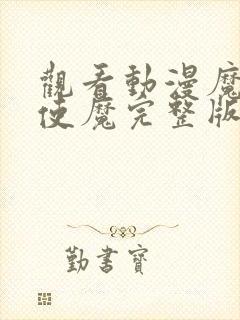 觀看動漫魔
使魔完整版
勤書寶